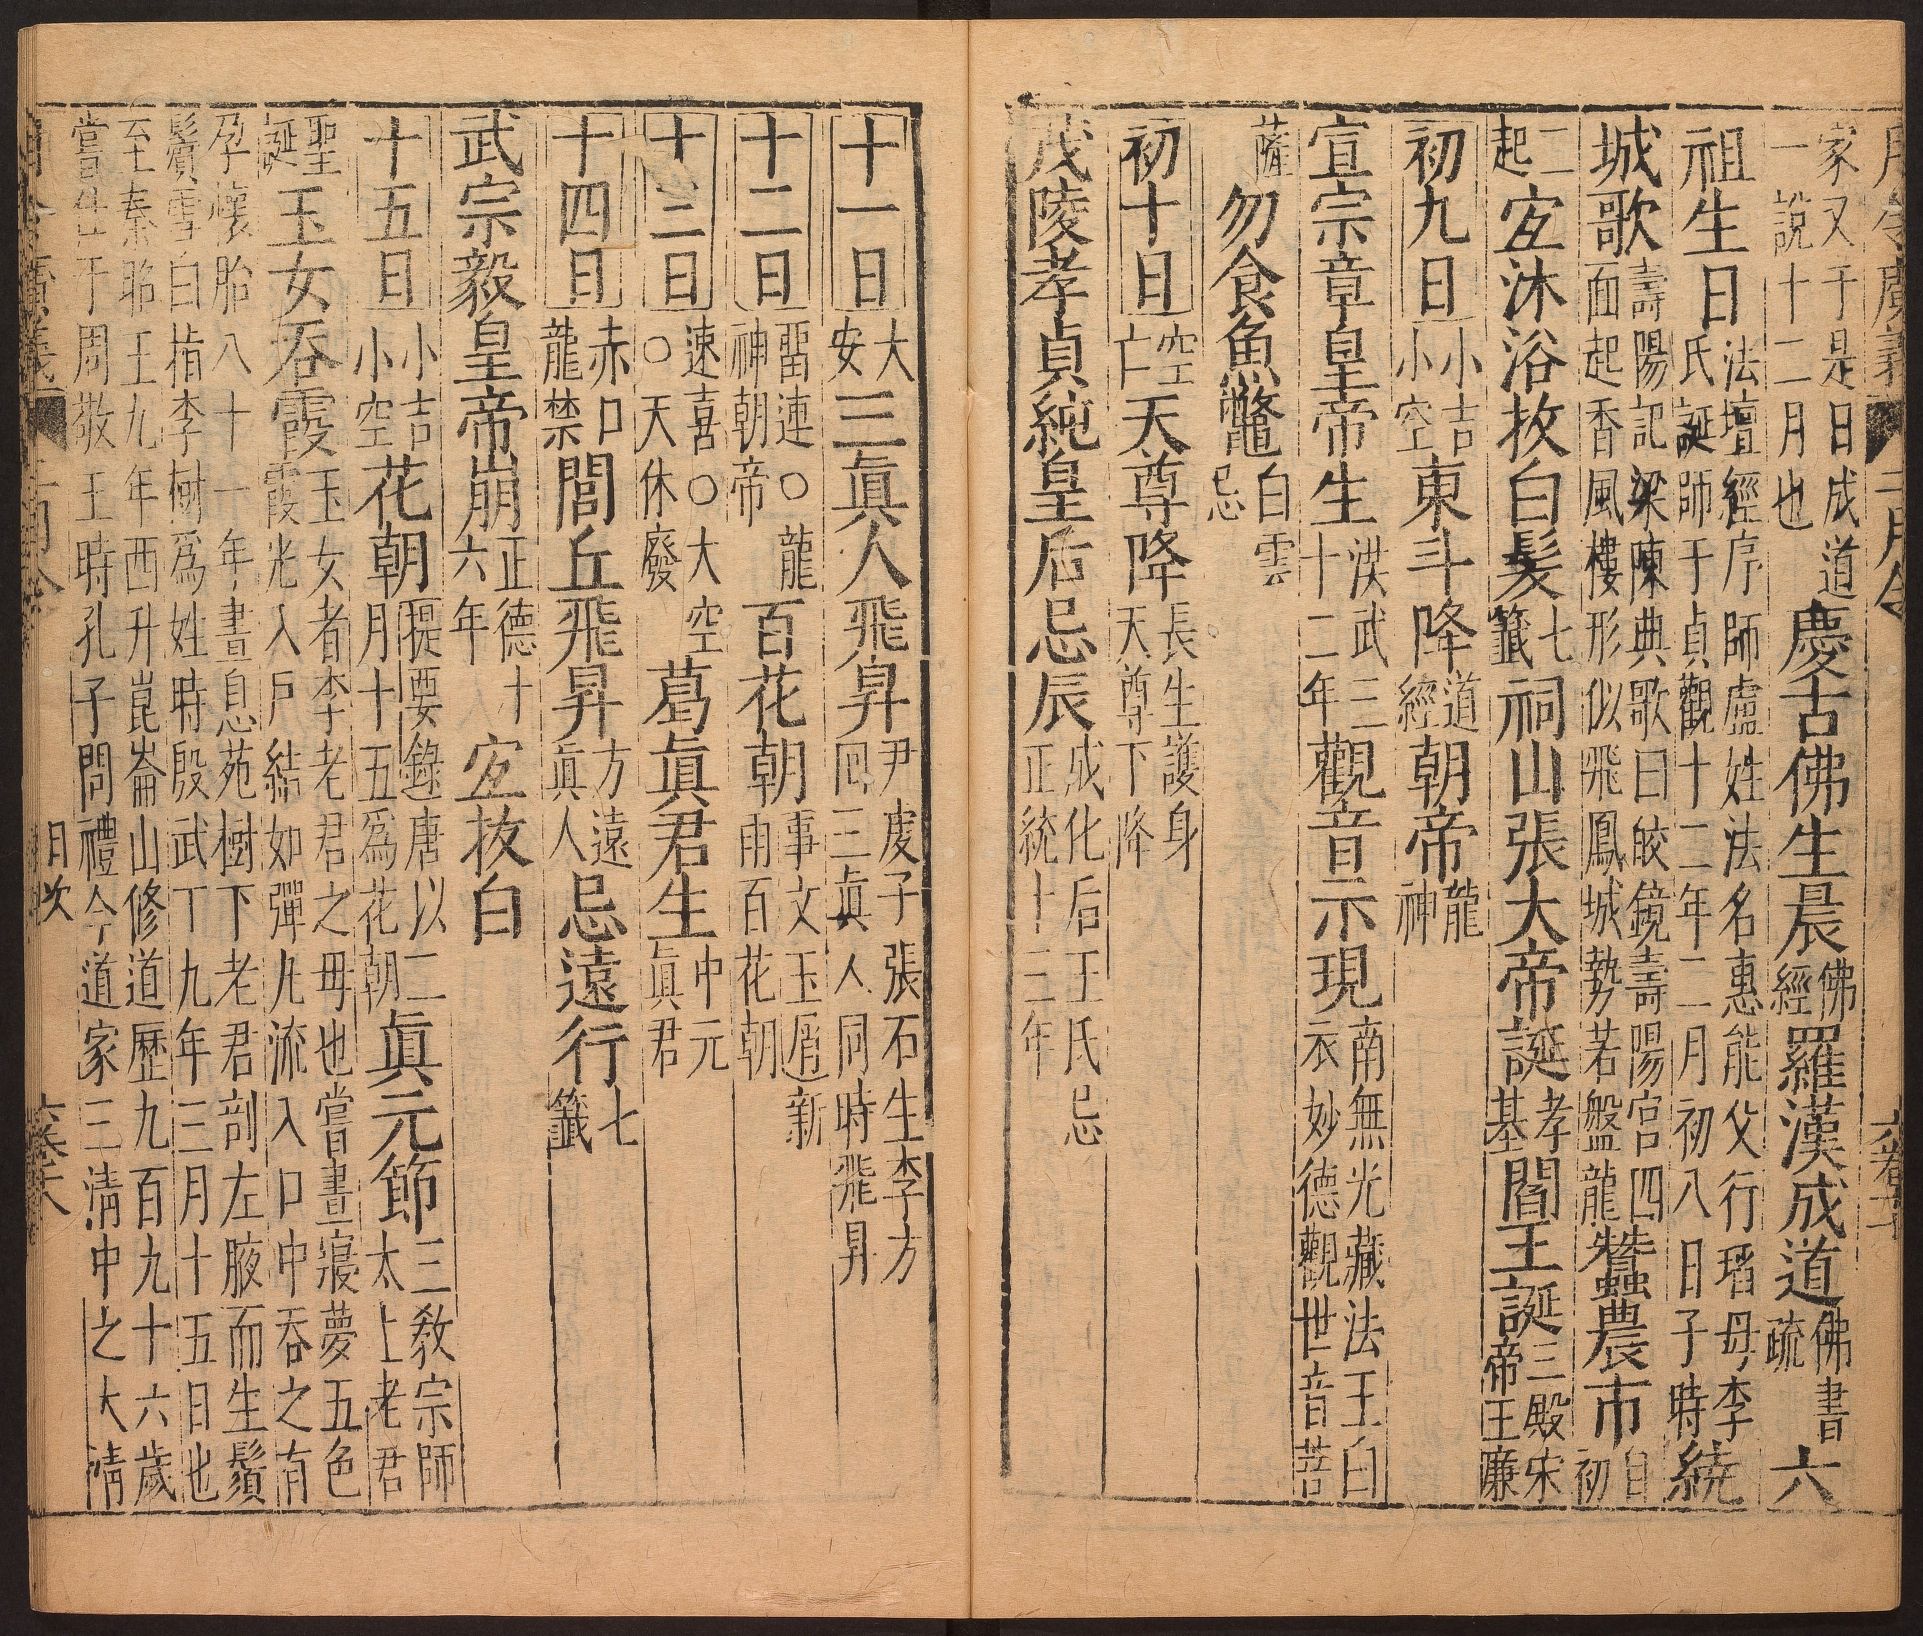 月令廣義 二月令
家又于是日成道
一說十二月也
慶古佛生辰
佛
經
羅漢成道
佛書
疏
六
祖生日
法壇經序師盧姓法名惠能父行瑫母李
氏誕師于貞觀十二年二月初八日子時
繞
城歌
壽陽記梁陳典歌曰皎鏡壽陽宮四
面起香風樓形似飛鳳城勢若盤龍
蠶農市
自
初
二
起
宜沐浴拔白髮
七
籤
祠山張大帝誕
孝
基
閻王誕
三殿宋
帝王廉
初九日
小吉
小空
東斗降
道
經
朝帝
龍
神
宣宗章皇帝生
洪武三
十二年
觀音示現
南無光藏法王曰
衣妙德觀世音菩
薩
勿食魚鼈
白雲
忌
初十日
空
亡
天尊降
長生護身
天尊下降
茂陵孝貞純皇后忌辰
成化后王氏忌
正統十三年
十一日
大
安
三眞人飛昇
尹虔子張石生李方
囘三眞人同時飛昇
十二日
畱連○龍
神朝帝
百花朝
事文玉屑新
雨百花朝
十三日
速喜○大空
○天休廢
葛眞君生
中元
眞君
十四日
赤口
龍禁
閭丘飛昇
方遠
眞人
忌遠行
七
籤
武宗毅皇帝崩
正德十
六年
宜拔白
十五日
小吉
小空
花朝
提要錄唐以二
月十五爲花朝
眞元節
三教宗師
太上老君
聖
誕
玉女吞霞
玉女者李老君之母也嘗晝寢夢五色
霞光入戶結如彈丸流入口中吞之有
孕懷胎八十一年晝息苑樹下老君剖左腋而生鬚
鬢雪白指李樹爲姓時殷武丁九年三月十五日也
至秦昭王九年西升崑崙山修道歷九百九十六歲
嘗仕于周敬王時孔子問禮今道家三清中之大清
月令廣義 二月令
日次